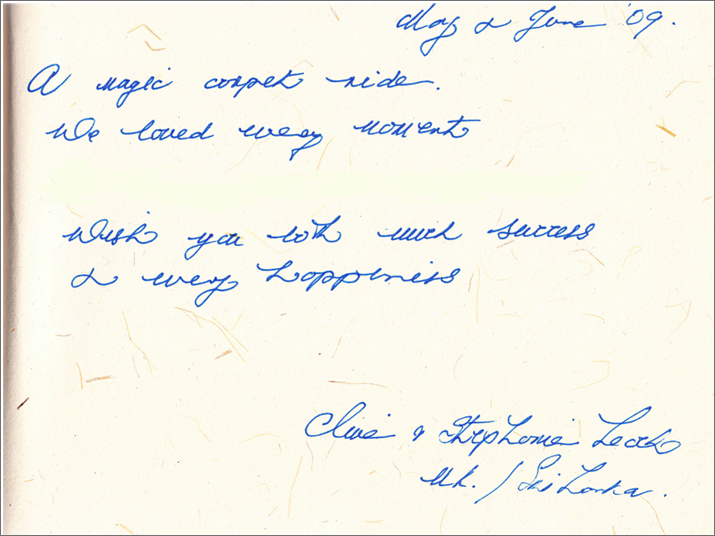 May & June '09.
A magic carpet ride.
We loved every moment
Wish you both much success
& every happiness
Clive & Stephanie Leach
UK. / Sri Lanka.